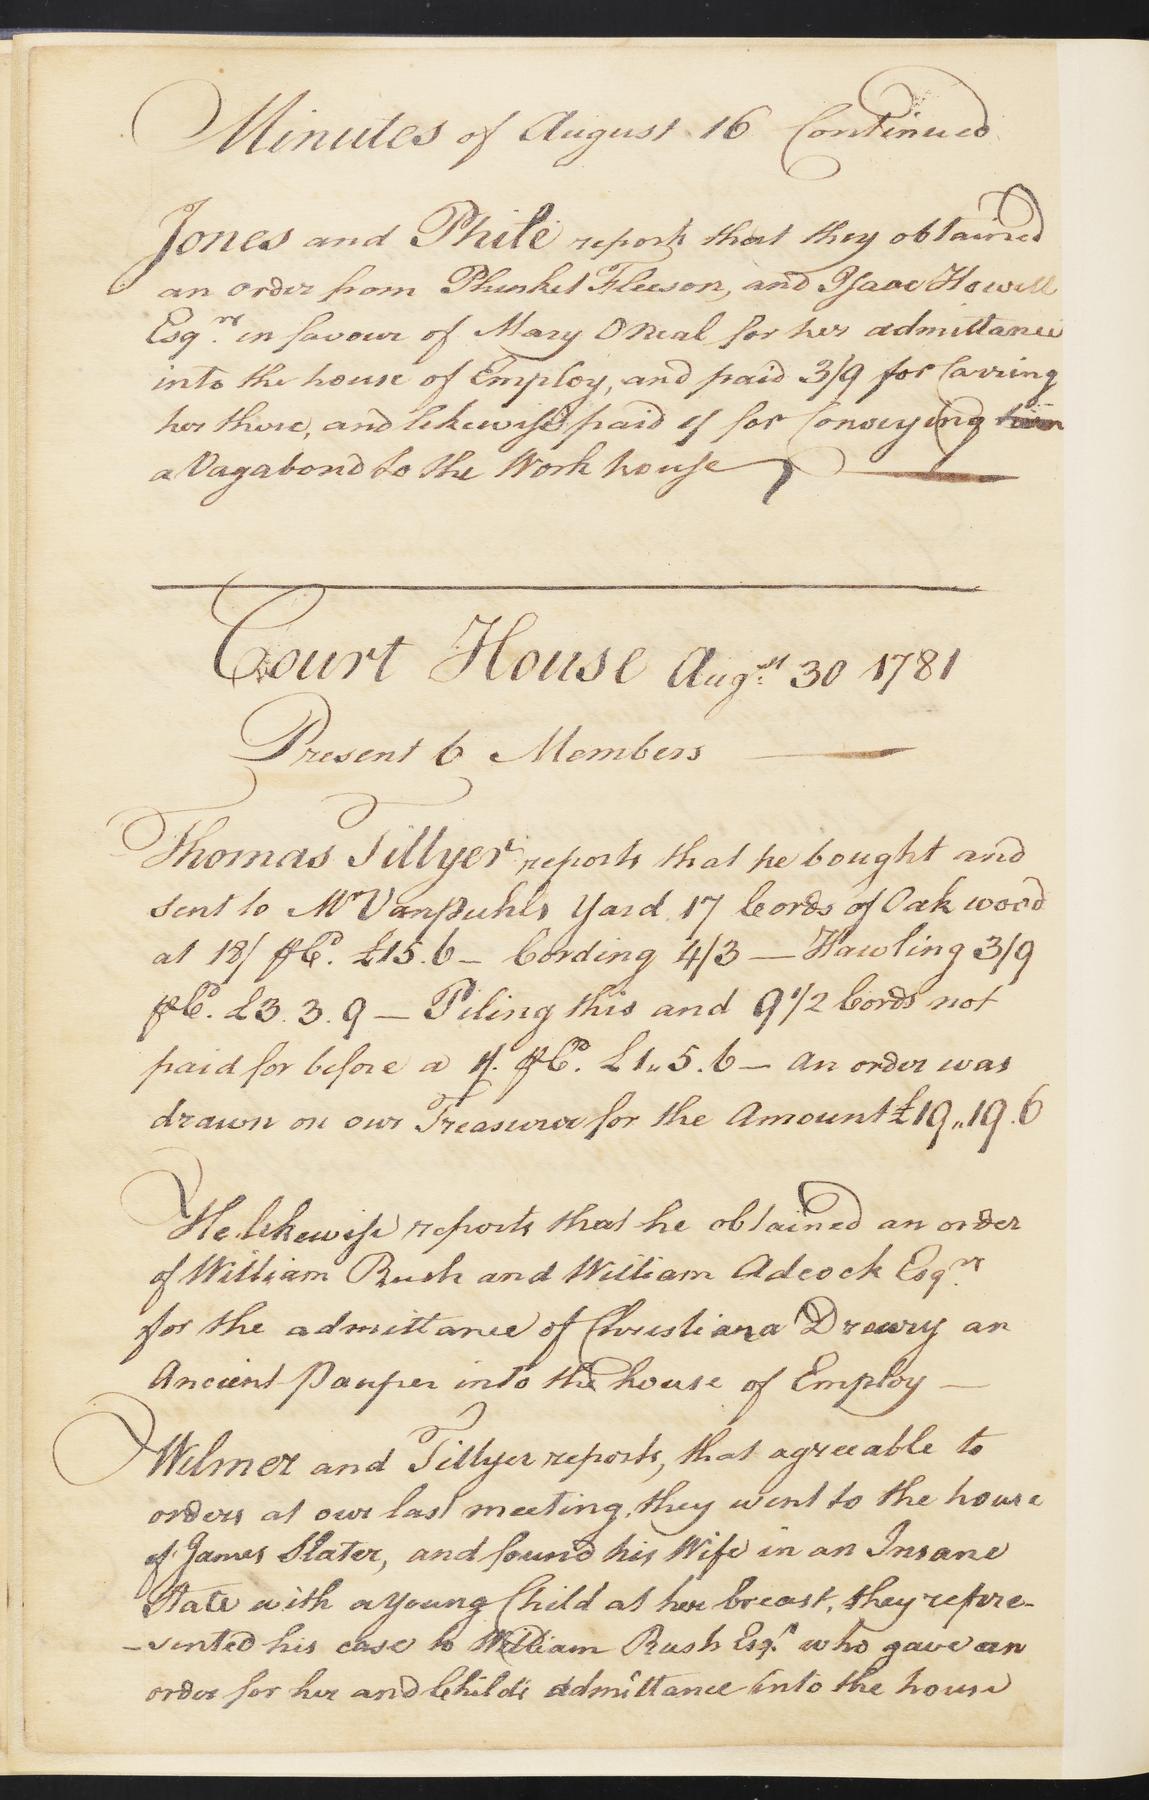 Minutes of August 16 Continued
Jones and Phile reports that they obtained
an order from Plunket Fleeson, and Isaac Howell
Esqrs in favour of Mary ONeal for her admittance
into the house of Employ, and paid 3/9 for Carring
her there, and likewise paid for Conveying
a Vagabond to the Work house
Court House Augst 30 1781
Present 6 Members
Thomas Tillyer reports that he bought and
sent to Mr Vanpuhls Yard 17 Cords of Oak wood
at 18/ ⅌ Cd. £15.6 – Cording 4/3 — Hawling 3/9
⅌ Cd. £3.3.9 — Piling this and 9 1/2 Cords not
paid for before a 1/. ⅌ Cd. £1,,5.6 – an order was
drawn on our Treasurer for the Amount £19,,19.6
He likewise reports that he obtained an order
of William Rush and William Adcock Esqrs
for the admittance of Christiana Drewry an
Ancient Pauper into the house of Employ —
Wilmer and Tillyer reports, that agreeable to
orders at our last meeting, they went to the house
of James Slater, and found his Wife in an Insane
State with a young Child at her breast, they repre-
-sented his case to William Rush Esqr who gave an
order for her and Childs admittance into the house